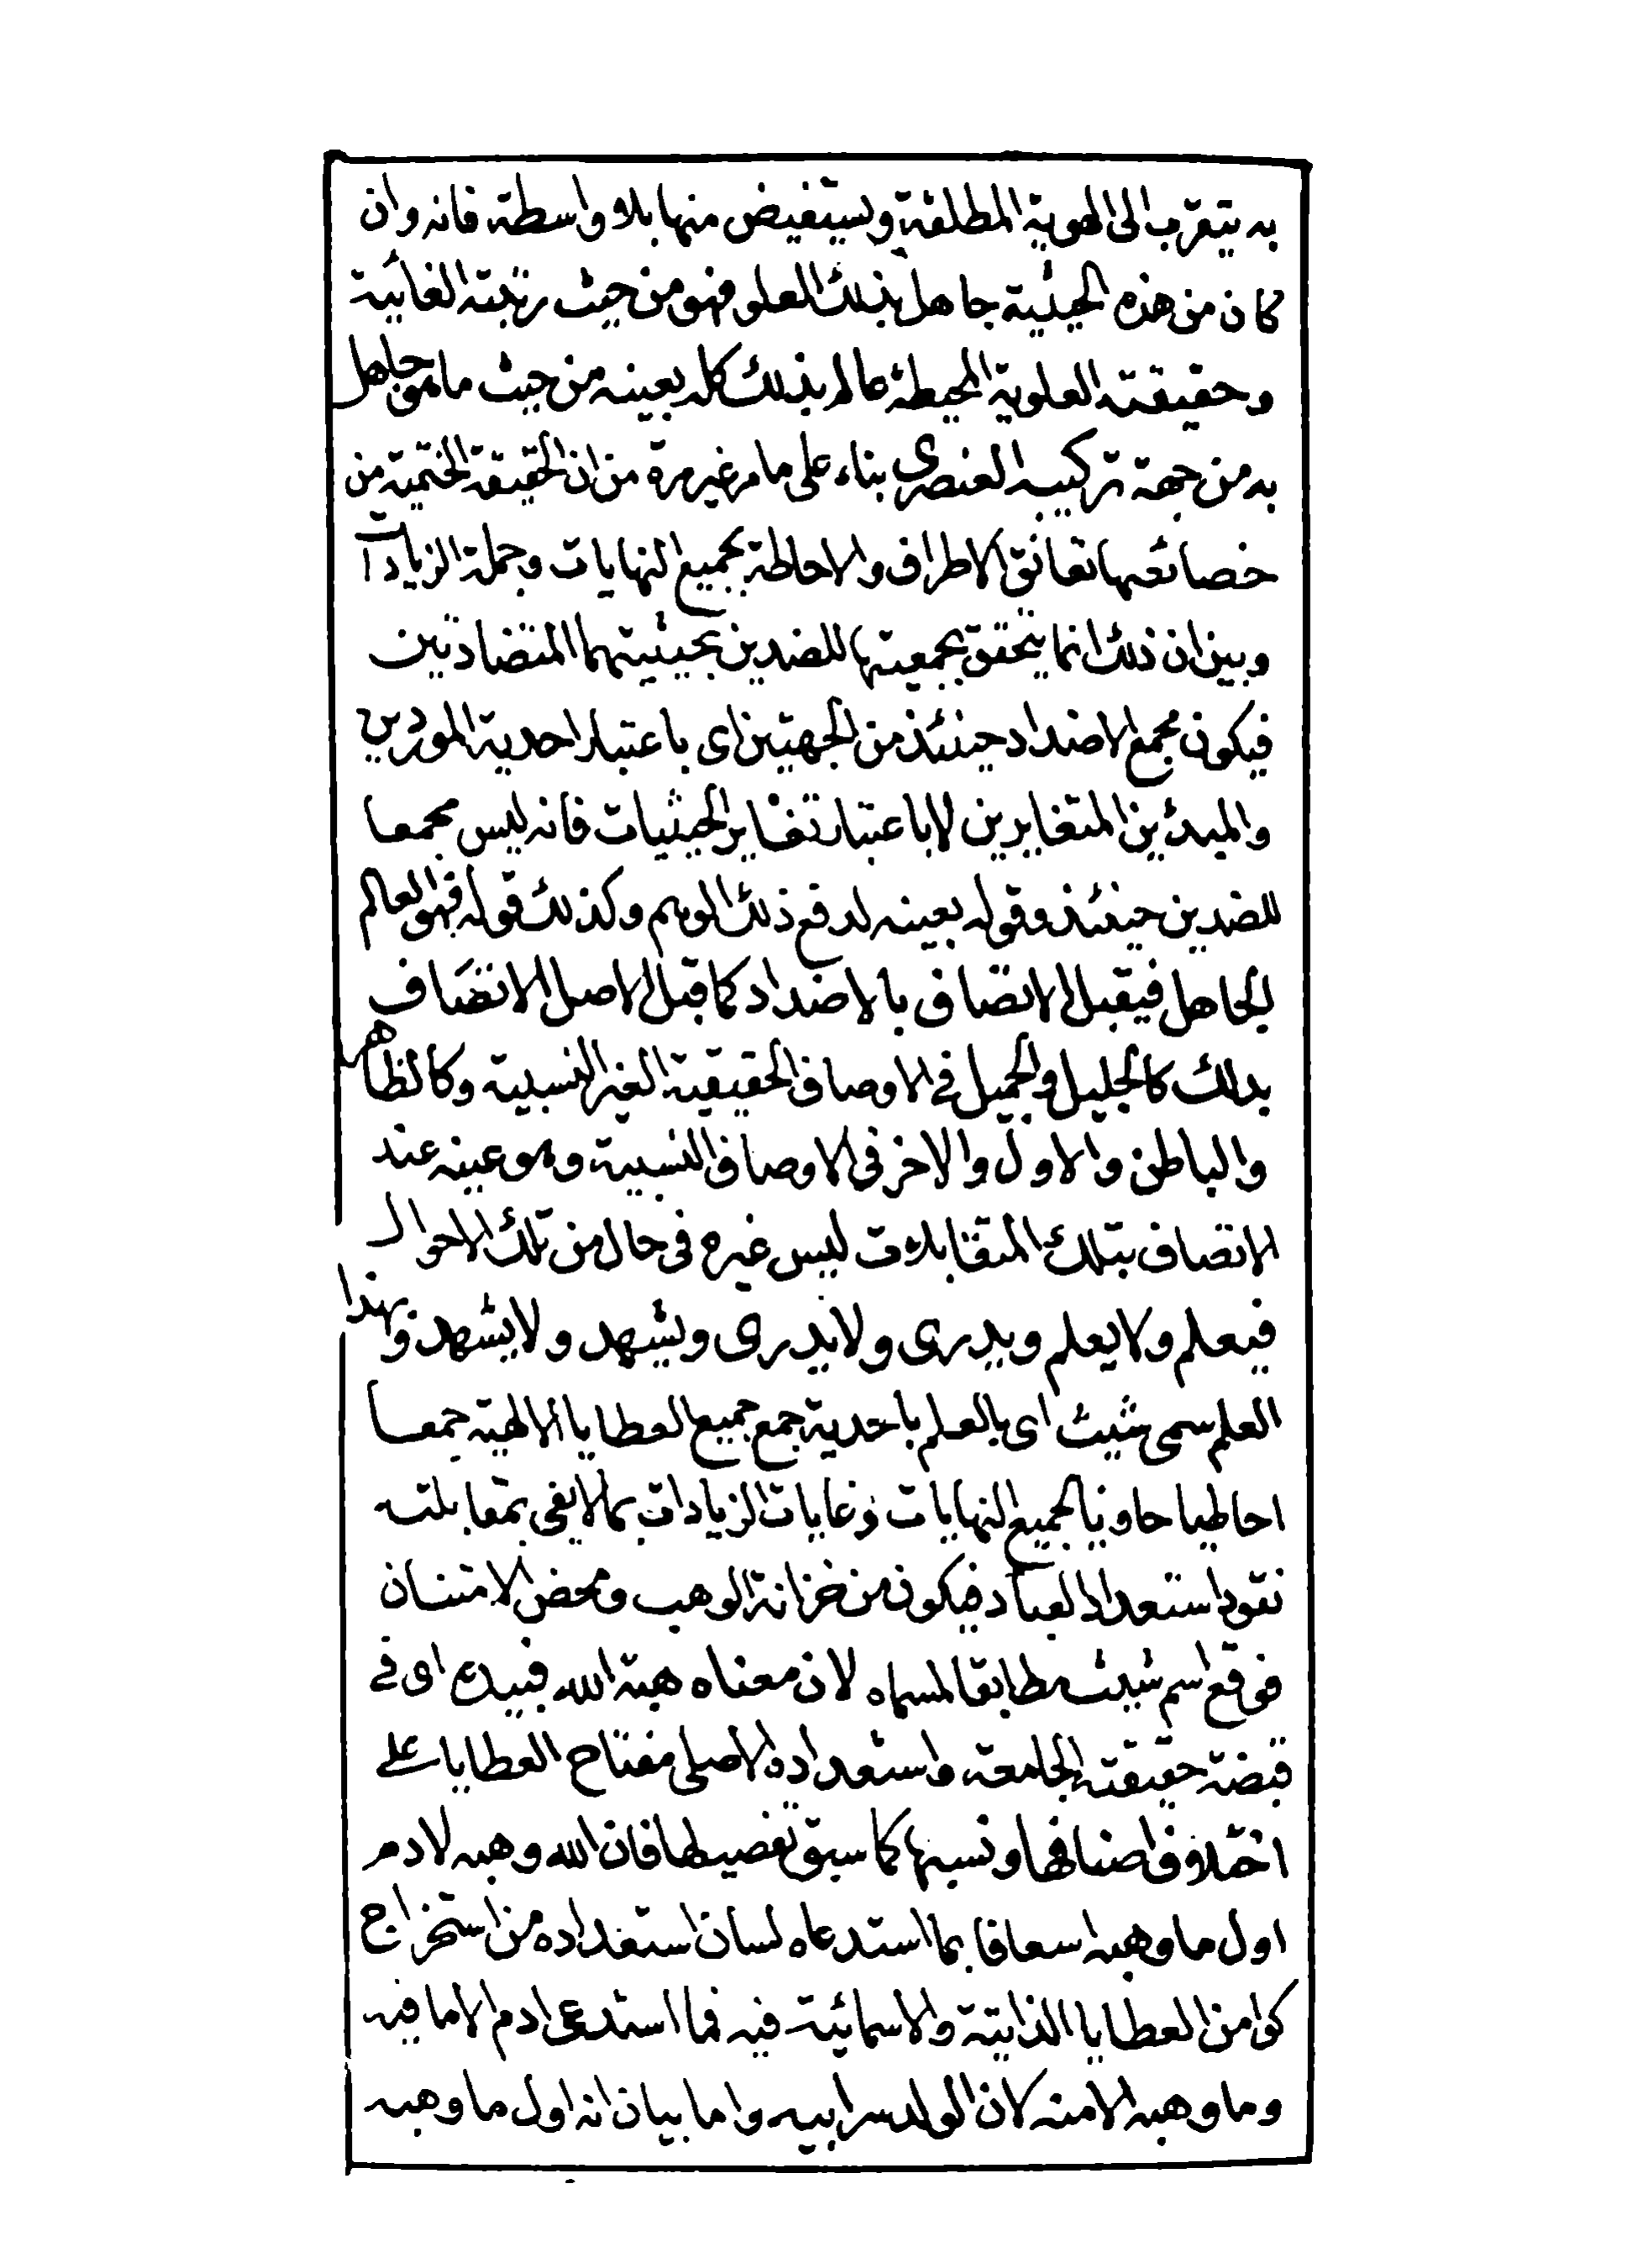 به يتقرب الى الهوية المطلقة ويستفيض منها بلا واسطة فانه وان
كان من هذه الحيثية جاهل بذلك العلو فهو من حيث رتبته الغائية
وحقيقته العلوية المحيطة عالم بذلك كله بعينه من حيث ما هو جاهل
به من جهة تركيبه العنصرى بناء على ما مر غير مرة من ان الحقيقة الختمية من
خصائصها تعانق الاطراف والاحاطة بجميع النهايات وجملة الزيادات
وبين ان ذلك انما يتحقق بجمعيتها للضدين بحيثيتهما المتضادتين
فيكون مجمع الاضداد حينئذ من الجهتين اى باعتبار احدية الموردين
والمبدئين المتغايرين لا باعتبار تغاير الحيثيات فانه ليس مجمعا
للضدين حينئذ وقوله بعينه لدفع ذلك الوهم وكذلك قوله فهو العالم
الجاهل فيقبل الاتصاف بالاضداد كما قبل الاصل الاتصاف
بذلك كالجليل والجميل فى الاوصاف الحقيقية الغير النسبية وكالظاهر
والباطن والاول والاخر فى الاوصاف النسبية وهو عينه عند
الاتصاف بتلك المتقابلات ليس غيره فى حال من تلك الاحوال
فيعلم ولا يعلم ويدرى ولا يدرى ويشهد ولا يشهد وبهذا
العلم سمى شيث اى بالعلم باحدية جمع جميع العطايا الالهية جمعا
احاطيا حاويا لجميع النهايات وغايات الزيادات بما لا يفى بمقابلته
نقود استعداد العباد فيكون من خزانة الوهب ومحض الامتنان
فوقع اسم شيث مطابقا لمسماه لان معناه هبة الله فبيده اى فى
قبضة حقيقته الجامعة واستعداده الاصلى مفتاح العطايا على
اختلاف اصنافها ونسبها كما سبق تفصيلها فان الله وهبه لادم
اول ما وهبه اسعافا بما استدعاه لسان استعداده من استخراج
كوامن العطايا الذاتية والاسمائية فيه فما استدعى ادم الا ما فيه
وما وهبه الا منه لان الولد سر ابيه واما بيان انه اول ما وهبه